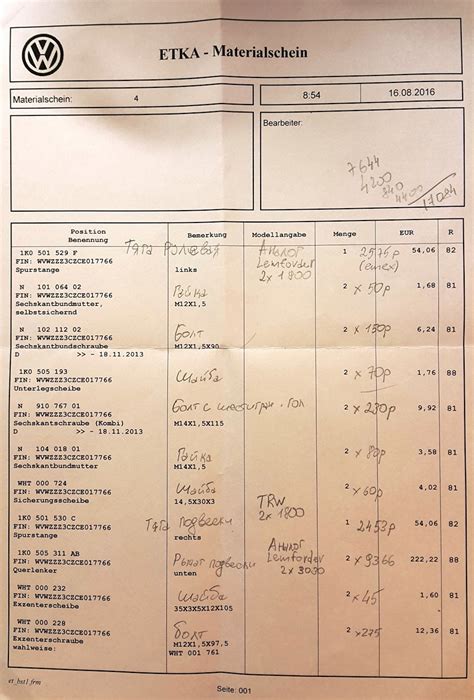 ETKA - Materialschein
Materialschein: 4 8:54 16.08.2016
Bearbeiter:
7644
4200
840
4400
17084
Position Bemerkung Modellangabe Menge EUR R
Benennung
Тяга Рулевая Аналог
1K0 501 529 F 1 2575р 54,06 82
FIN: WVWZZZ3CZCE017766 Lemforder (emex)
Spurstange links 2x1900
N 101 064 02 Гайка 2 x 50р 1,68 81
FIN: WVWZZZ3CZCE017766
Sechskantbundmutter, M12X1,5
selbstsichernd
N 102 112 02 Болт 2 x 150р 6,24 81
FIN: WVWZZZ3CZCE017766
Sechskantbundschraube M12X1,5X90
D >> - 18.11.2013
1K0 505 193 Шайба 2 x 70р 1,76 88
FIN: WVWZZZ3CZCE017766
Unterlegscheibe
N 910 767 01 Болт с шестигран. гол 2 x 230р 9,92 81
FIN: WVWZZZ3CZCE017766
Sechskantschraube (Kombi) M14X1,5X115
D >> - 18.11.2013
N 104 018 01 Гайка 2 x 80р 3,58 81
FIN: WVWZZZ3CZCE017766
Sechskantbundmutter M14X1,5
WHT 000 724 Шайба 2 x 60р 4,02 81
FIN: WVWZZZ3CZCE017766
Sicherungsscheibe 14,5X30X3 TRW
1K0 501 530 C Тяга подвески 2x1800 1 2453р 54,06 82
FIN: WVWZZZ3CZCE017766
Spurstange rechts
1K0 505 311 AB Аналог 2 x 9366 222,22 88
FIN: WVWZZZ3CZCE017766 Рычаг подвески Lemforder
Querlenker unten 2x3030
WHT 000 232 Шайба 2 x 45 1,60 81
FIN: WVWZZZ3CZCE017766
Exzenterscheibe 35X3X5X12X105
WHT 000 228 болт 2 x 275 12,36 81
FIN: WVWZZZ3CZCE017766
Exzenterschraube M12X1,5X97,5
wahlweise: WHT 001 761
et_bst1.frm
Seite: 001